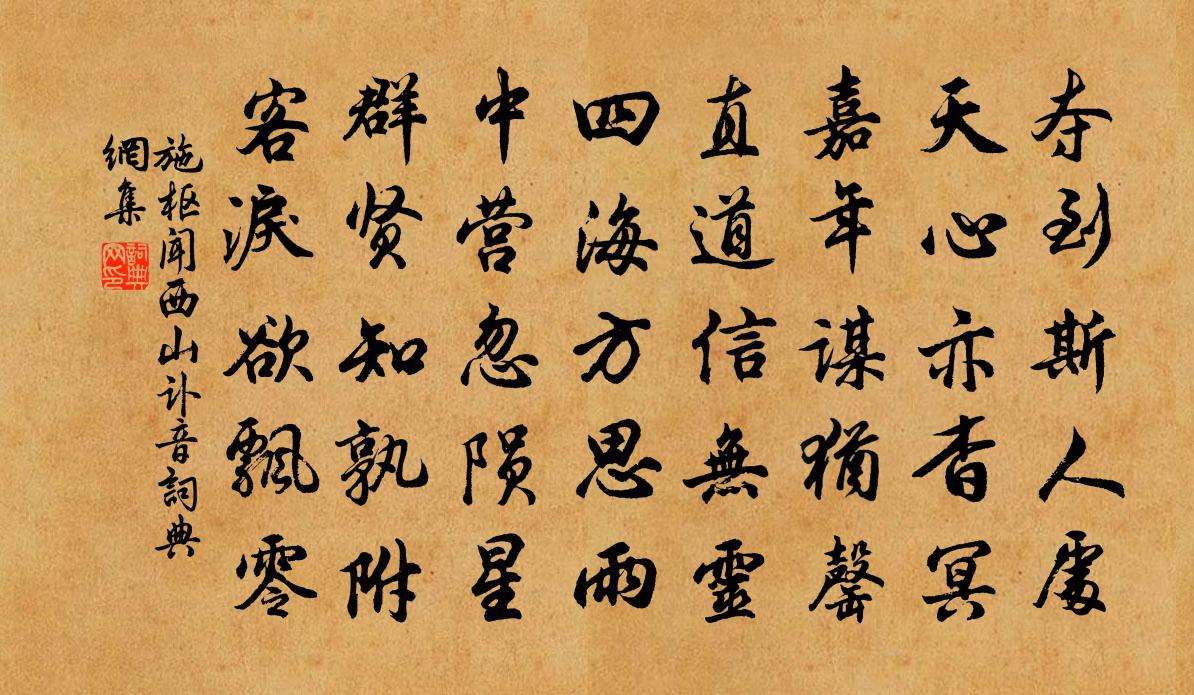 夺到斯人處
天心亦杳冥
嘉年謀猶罄
直道信無靈
四海方思雨
中营忽陨星
群贤知孰附
客淚欲飄零
施枢闻西山讣音詞典
網集
詞典网印